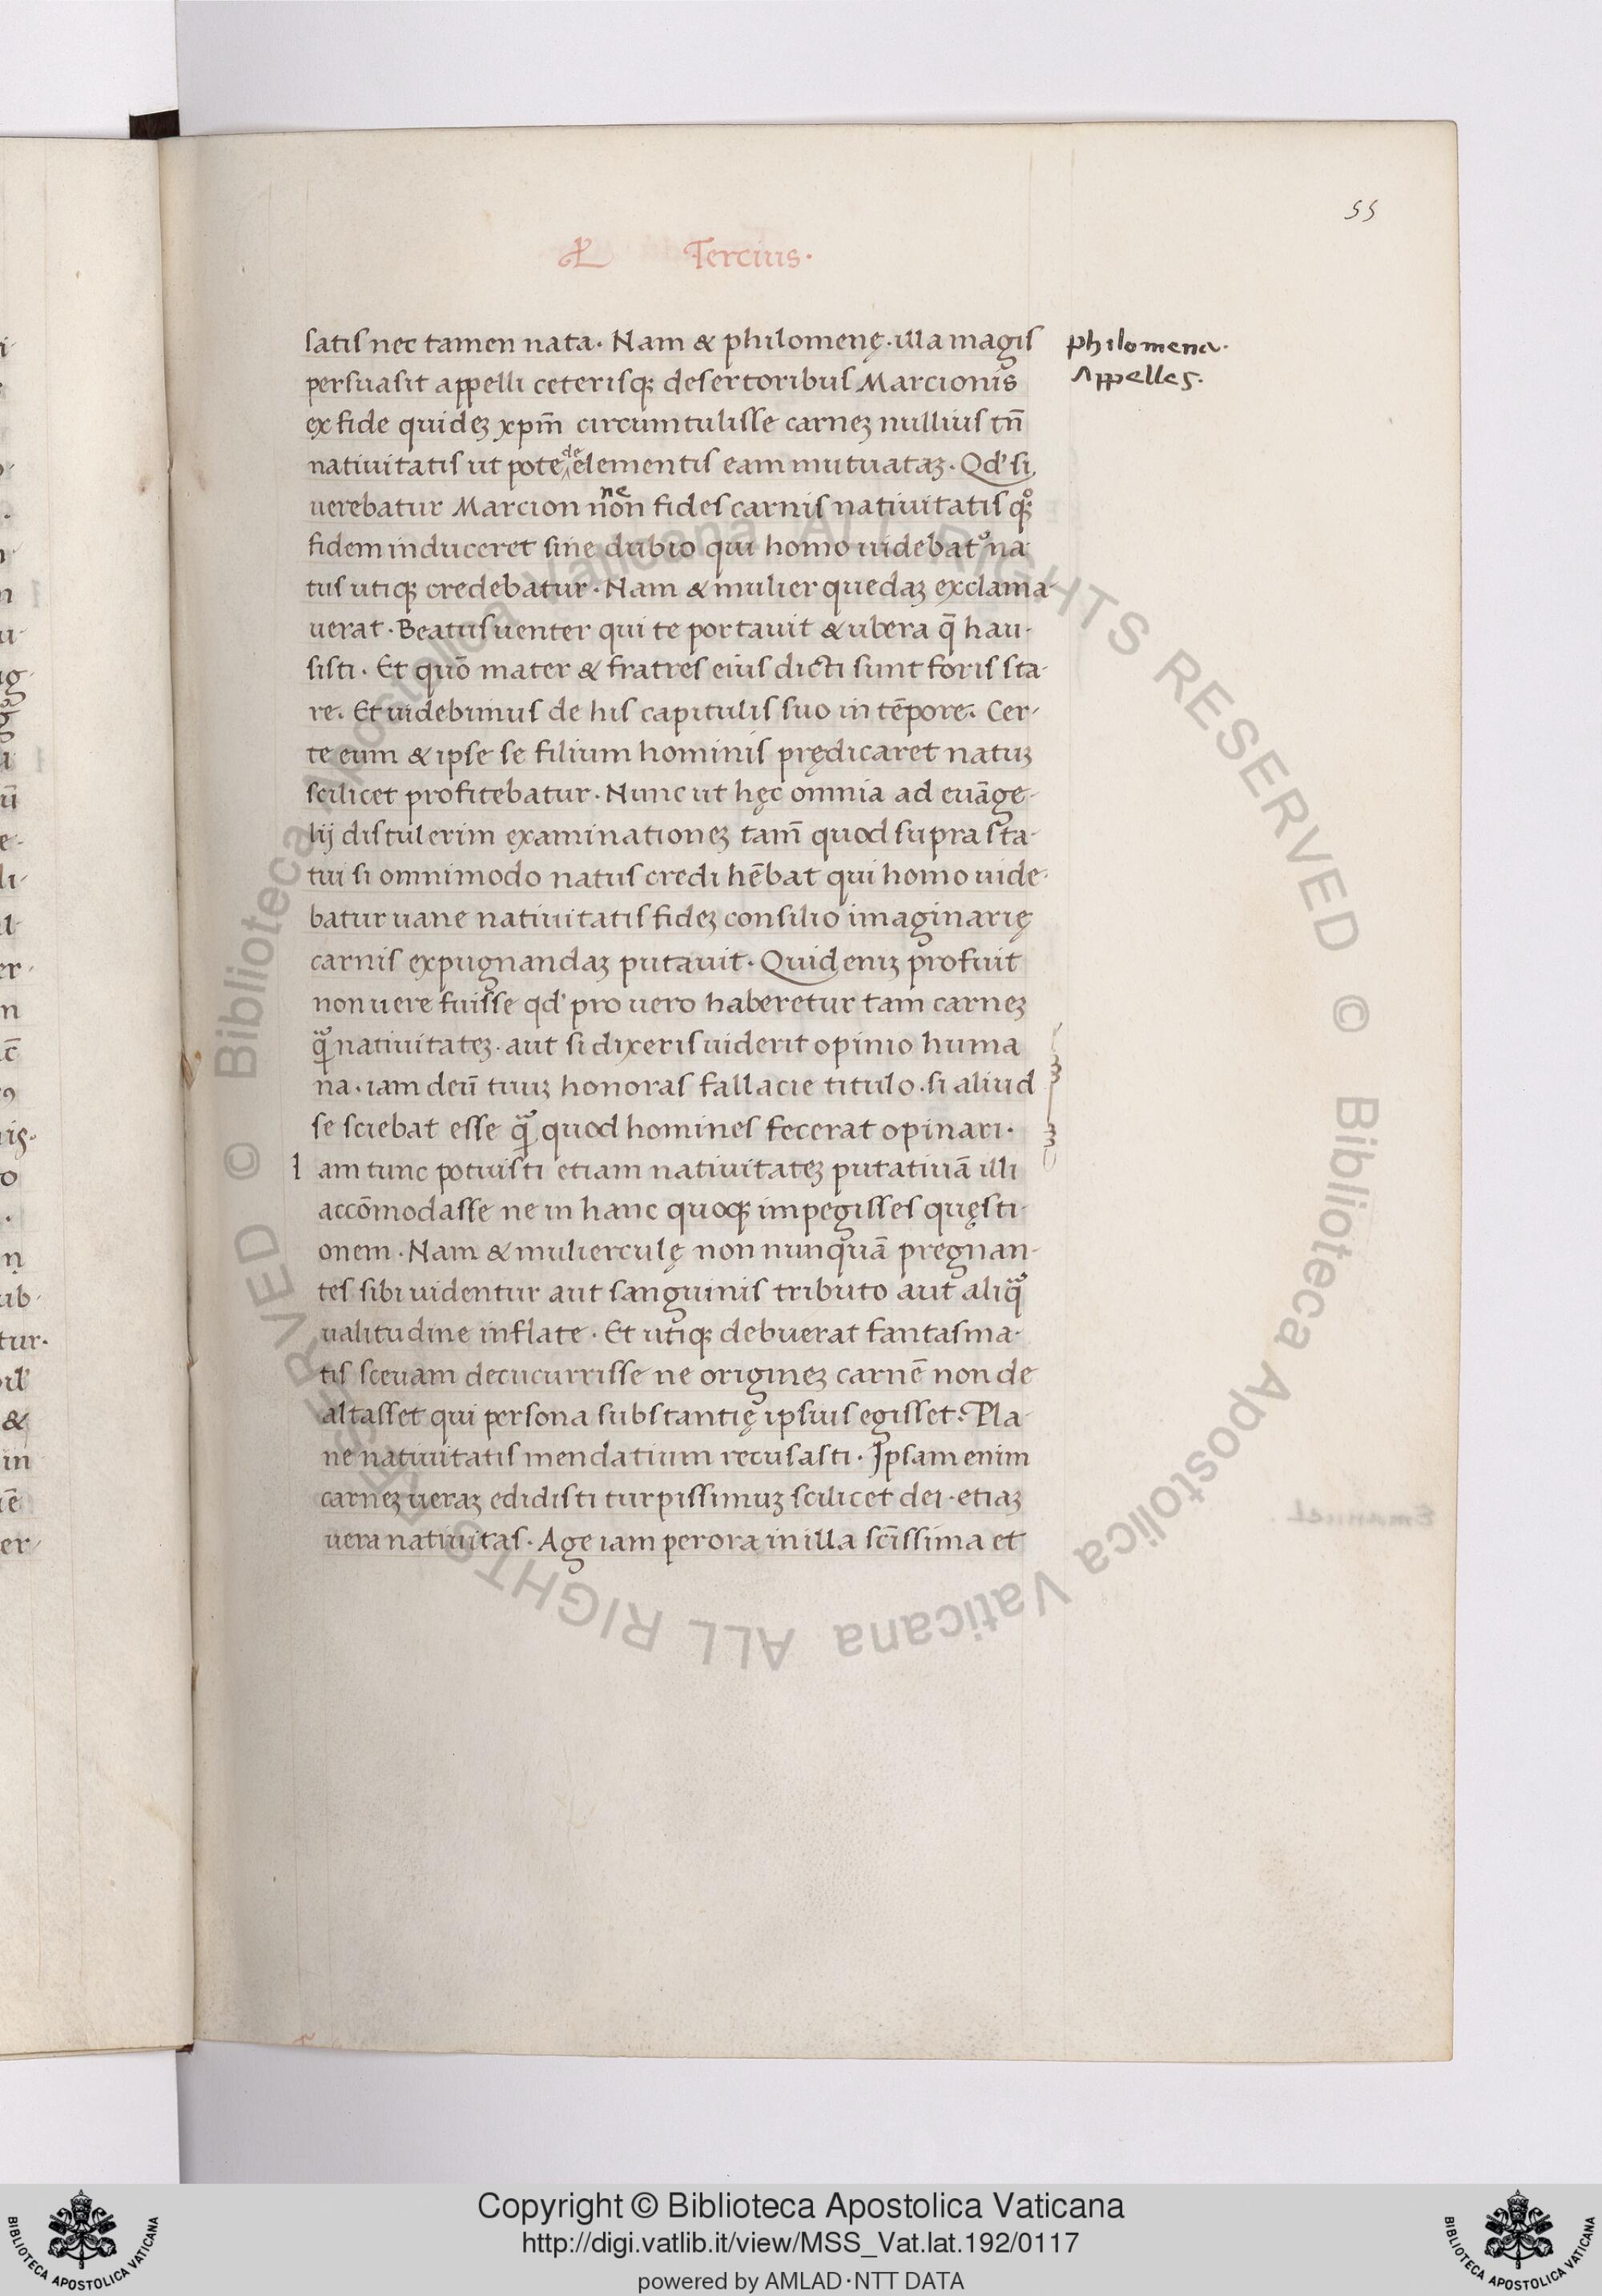 55
Tercius·
satis nec tamen nata· Nam & philomenę·illa magis
persuasit appelli ceterisqꝫ desertoribus Marcionis
ex fide quideꝫ xp̄m circumtulisse carneꝫ nullius tn̄
natiuitatis ut pote de elementis eam mutuataꝫ· Qd' si
uerebatur Marcion ne non fides carnis natiuitatis qꝫ
fidem induceret sine dubio qui homo uidebat᷒ na
tus utiqꝫ credebatur· Nam & mulier quedaꝫ exclama-
uerat· Beatus uenter qui te portauit & ubera q̄ hau-
sisti· Et quō mater & fratres eius dicti sunt foris sta-
re· Et uidebimus de his capitulis suo in tēpore· Cer-
te eum & ipse se filium hominis prędicaret natuꝫ
scilicet profitebatur· Nunc ut hęc omnia ad euāge-
lij distulerim examinationeꝫ tam̄ quod supra sta-
tui si omnimodo natus credi hēbat qui homo uide-
batur uane natiuitatis fideꝫ consilio imaginarię
carnis expugnandaꝫ putauit· Quid eniꝫ profuit
non uere fuisse qd' pro uero haberetur tam carneꝫ
qᷓ natiuitateꝫ· aut si dixeris uiderit opinio huma
na· iam deū tuuꝫ honoras fallacie titulo· si aliud
se sciebat esse qᷓ quod homines fecerat opinari·
I am tunc potuisti etiam natiuitateꝫ putatiuā illi
accōmodasse ne in hanc quoqꝫ impegisses quęsti-
onem· Nam & mulierculę non nunquā pregnan-
tes sibi uidentur aut sanguinis tributo aut aliqᷓ
ualitudine inflate· Et utiqꝫ debuerat fantasma-
tis sceuam decucurrisse ne origineꝫ carnē non de
altasset qui persona substantię ipsius egisset· Pla-
ne natiuitatis mendatium recusasti· Ipsam enim
carneꝫ ueraꝫ edidisti turpissimuꝫ scilicet dei· etiaꝫ
uera natiuitas· Age iam perora in illa scīssima et
philomena·
Appelles·
© Biblioteca Apostolica Vaticana ALL RIGHTS RESERVED
© Biblioteca Apostolica Vaticana ALL RIGHTS RESERVED
Copyright © Biblioteca Apostolica Vaticana
http://digi.vatlib.it/view/MSS_Vat.lat.192/0117
powered by AMLAD·NTT DATA
BIBLIOTECA APOSTOLICA VATICANA
BIBLIOTECA APOSTOLICA VATICANA